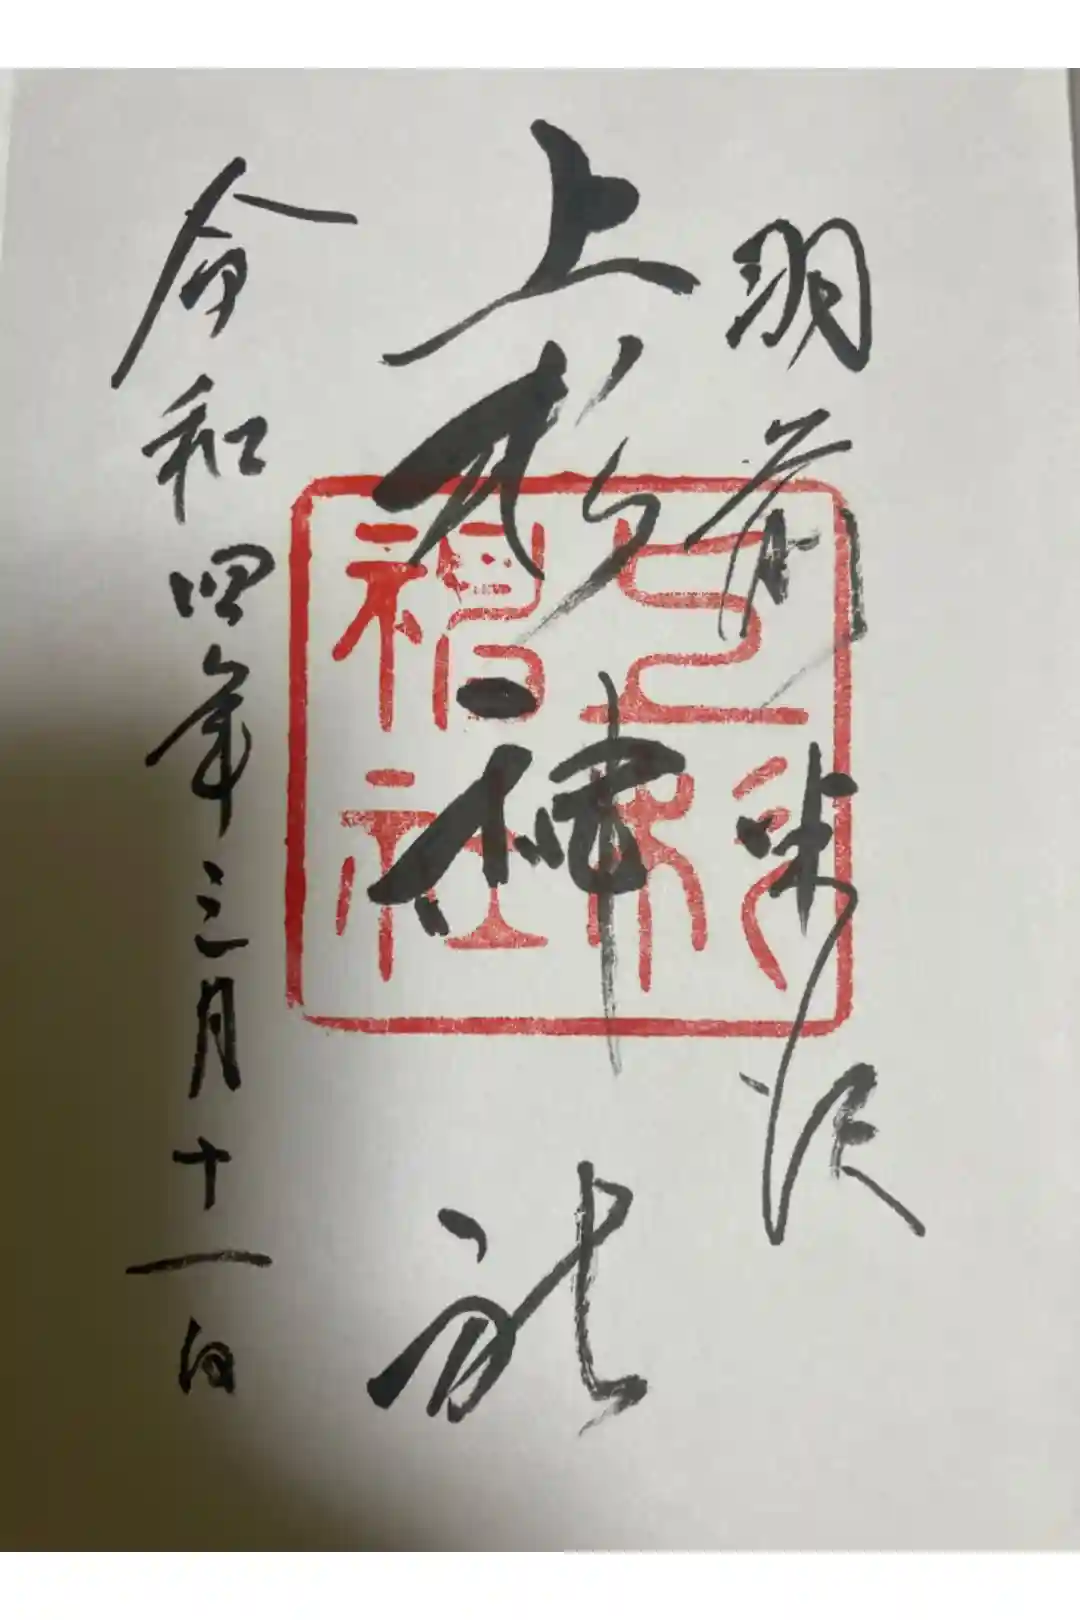 羽前米沢
上杉神社
令和四年三月十一日
上杉
神社